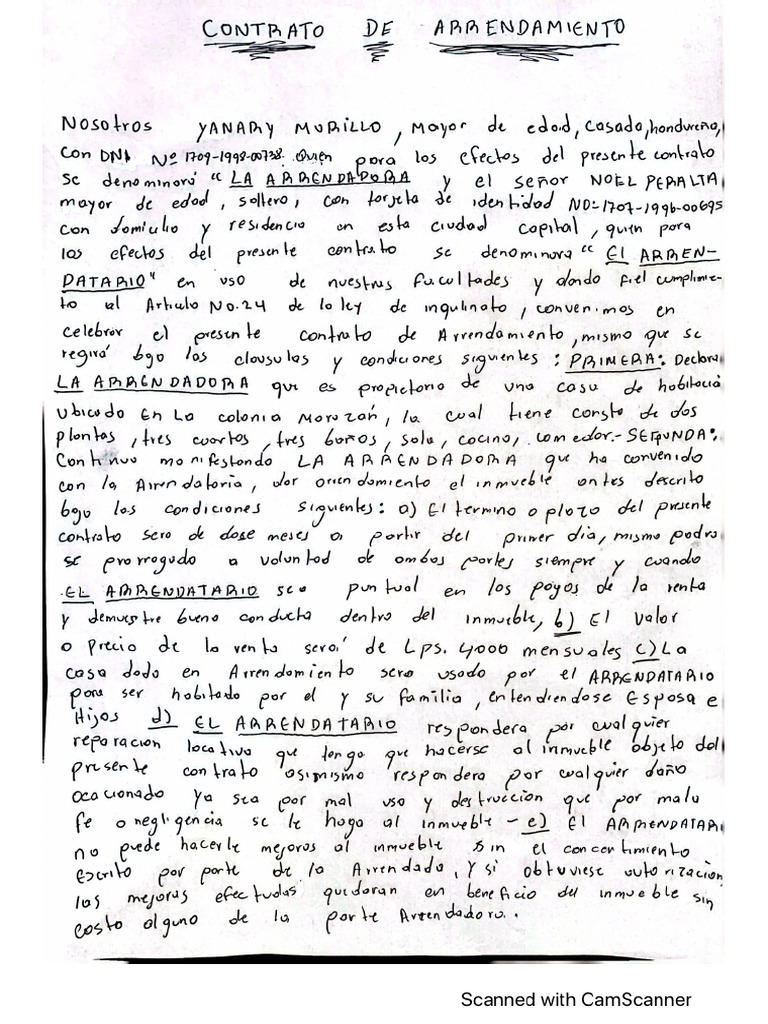 CONTRATO DE ARRENDAMIENTO
Nosotros YANARY MURILLO, mayor de edad, casada, hondureña,
con DNI Nº 1709-1998-00738. Quien para los efectos del presente contrato
se denominará "LA ARRENDADORA y el señor NOEL PERALTA,
mayor de edad, soltero, con tarjeta de identidad NO=1707-1996-00695
con domicilio y residencia en esta ciudad capital, quien para
los efectos del presente contrato se denominara "El ARREN-
DATARIO" en uso de nuestras facultades y dando fiel cumplimie-
to al Articulo No.24 de la ley de inquilinato, convenimos en
celebrar el presente contrato de Arrendamiento, mismo que se
regirá bajo las clausulas y condiciones siguientes: PRIMERA: Declara
LA ARRENDADORA que es propietaria de una casa de habitació
Ubicada En La colonia Morazán, la cual tiene consta de dos
plantas, tres cuartos, tres baños, sala, cocina, comedor.- SEGUNDA:
Continuo manifestando LA ARRENDADORA que ha convenido
con la Arrendataria, dar arrendamiento el inmueble antes descrito
bajo las condiciones siguientes: a) El termino o plazo del presente
contrato sera de dose meses a partir del primer dia, mismo podra
se prorrogado a voluntad de ambas partes siempre y cuando
EL ARRENDATARIO sea puntual en los pagos de la renta
y demuestre buena conducta dentro del inmueble, b) El valor
o precio de la renta será de Lps. 4000 mensuales c) La
casa dada en Arrendamiento sera usada por el ARRENDATARIO
para ser habitada por el y su familia, entendiendose Esposa e
Hijos d) EL ARRENDATARIO respondera por cualquier
reparacion locativa que tenga que hacerse al inmueble objeto del
presente contrato asimismo respondera por cualquier daño
ocacionado ya sea por mal uso y destruccion que por mala
fe o negligencia se le haga al inmueble - e) El ARRENDATARI
no puede hacerle mejoras al inmueble sin el concertimiento
Escrito por parte de la Arrendada, y si obtuviese autorizacion
las mejoras efectudas quedaran en beneficio del inmueble sin
costo alguno de la parte Arrendadora.
Scanned with CamScanner